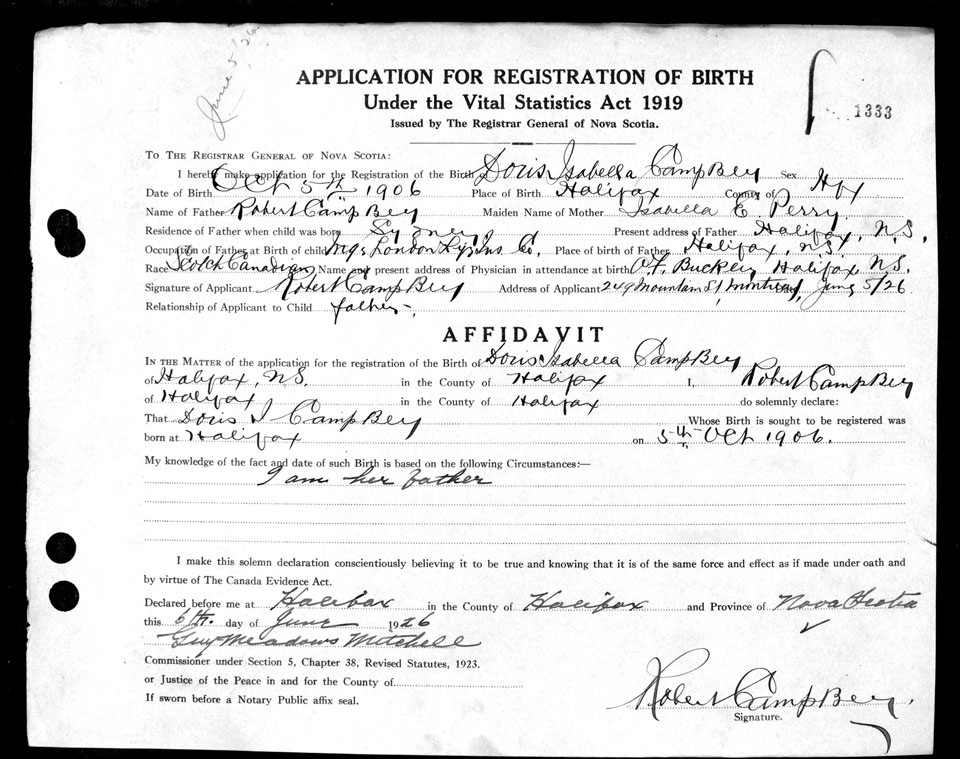 June 5/26
APPLICATION FOR REGISTRATION OF BIRTH
Under the Vital Statistics Act 1919
Issued by The Registrar General of Nova Scotia.
1333
TO THE REGISTRAR GENERAL OF NOVA SCOTIA:
I hereby make application for the Registration of the Birth of Doris Isabella Campbell Sex
Date of Birth Oct 5th 1906 Place of Birth Halifax County of Hfx
Name of Father Robert Campbell Maiden Name of Mother Isabella E. Perry
Residence of Father when child was born Sydney Present address of Father Halifax, N.S.
Occupation of Father at Birth of child Mgr London Ins Co. Place of birth of Father Halifax, N.S.
Race Scotch Canadian Name and present address of Physician in attendance at birth Buckley Halifax N.S.
Signature of Applicant Robert Campbell Address of Applicant 249 Mountain St, Montreal, Date June 5/26
Relationship of Applicant to Child father
AFFIDAVIT
IN THE MATTER of the application for the registration of the Birth of Doris Isabella Campbell
of Halifax, N.S. in the County of Halifax I, Robert Campbell
of Halifax in the County of Halifax do solemnly declare:
That Doris I Campbell Whose Birth is sought to be registered was
born at Halifax on 5th Oct 1906.
My knowledge of the fact and date of such Birth is based on the following Circumstances:—
I am her father
I make this solemn declaration conscientiously believing it to be true and knowing that it is of the same force and effect as if made under oath and
by virtue of The Canada Evidence Act.
Declared before me at Halifax in the County of Halifax and Province of Nova Scotia
this 6th. day of June 1926
Guy Meadows Mitchell
Commissioner under Section 5, Chapter 38, Revised Statutes, 1923.
or Justice of the Peace in and for the County of
If sworn before a Notary Public affix seal.
Robert Campbell
Signature.